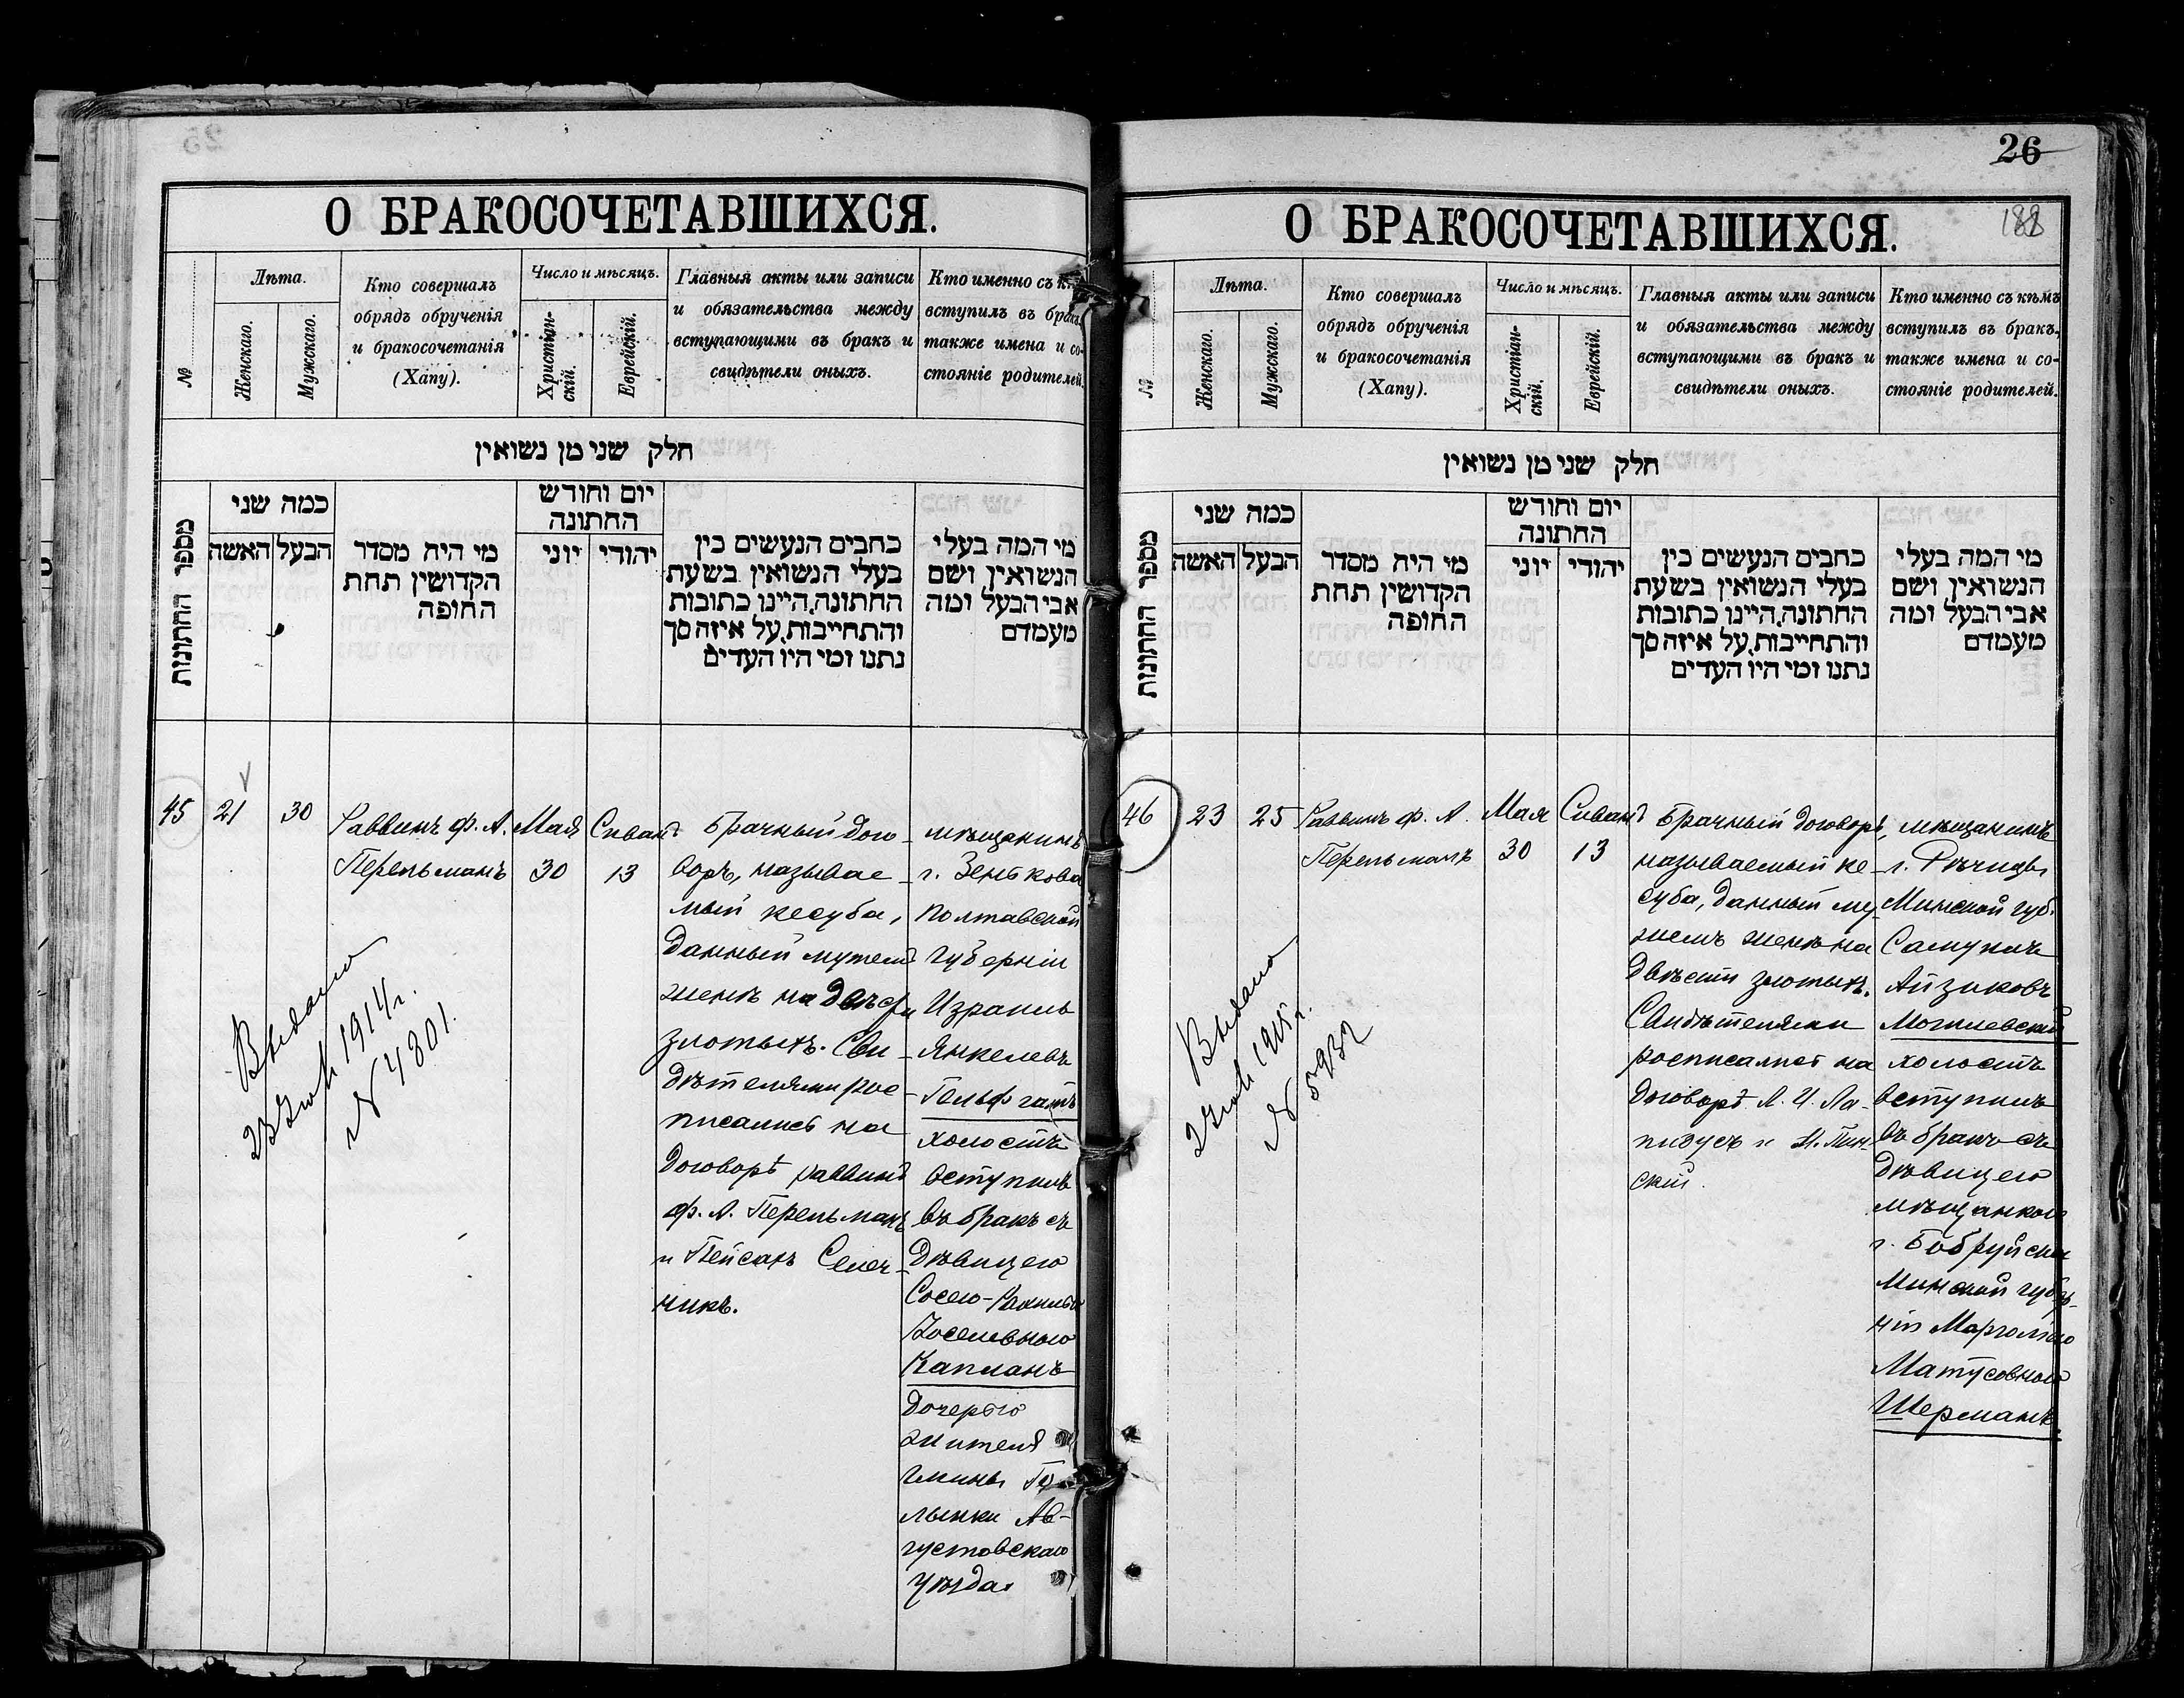 25
О БРАКОСОЧЕТАВШИХСЯ.
№
Лѣта.
Женскаго.
Мужскаго.
Кто совершалъ
обрядъ обрученія
и бракосочетанія
(Хапу).
Число и мѣсяцъ.
Христіан-
скій.
Еврейскій.
Главныя акты или записи
и обязательства между
вступающими въ бракъ и
свидѣтели оныхъ.
Кто именно съ
вступилъ въ бракъ,
также имена и со-
стояніе родителей.
חלק שני מן נשואין
מספר החתונות
כמה שני
הבעל
האשה
מי היה מסדר
הקדושין תחת
החופה
יום וחודש
החתונה
יהודי
יוני
כתבים הנעשים בין
בעלי הנשואין בשעת
החתונה, היינו כתובות
והתחייבות, על איזה סך
נתנו ומי היו העדים
מי המה בעלי
הנשואין ושם
אבי הבעל ומה
מעמדם
45
21
30
Раввинъ Ф. А.
Перельманъ
Мая
30
Сиванъ
13
Брачный дого-
воръ, называе-
мый кесуба,
данный мужемъ
женѣ на двѣсти
злотыхъ. Сви-
дѣтелями рос-
писались на
договорѣ раввинъ
Ф. А. Перельманъ
и Пейсахъ
никъ.
мѣщанинъ
г. Зенькова
Полтавской
губерніи
Израиль
Янкелевъ
Гельфгатъ
холостъ
вступилъ
въ бракъ съ
дѣвицею
Сосею-Рахилью
Іоселевною
Капланъ
дочерью
жителя
гмины
лынки Ав-
густовскаго
уѣзда
Выдано
23 Іюля 1914 г.
№ 4801.
26
188
О БРАКОСОЧЕТАВШИХСЯ.
№
Лѣта.
Женскаго.
Мужскаго.
Кто совершалъ
обрядъ обрученія
и бракосочетанія
(Хапу).
Число и мѣсяцъ.
Христіан-
скій.
Еврейскій.
Главныя акты или записи
и обязательства между
вступающими въ бракъ и
свидѣтели оныхъ.
Кто именно съ кѣмъ
вступилъ въ бракъ,
также имена и со-
стояніе родителей.
חלק שני מן נשואין
מספר החתונות
כמה שני
הבעל
האשה
מי היה מסדר
הקדושין תחת
החופה
יום וחודש
החתונה
יהודי
יוני
כתבים הנעשים בין
בעלי הנשואין בשעת
החתונה, היינו כתובות
והתחייבות, על איזה סך
נתנו ומי היו העדים
מי המה בעלי
הנשואין ושם
אבי הבעל ומה
מעמדם
46
23
25
Раввинъ Ф. А.
Перельманъ
Мая
30
Сиванъ
13
Брачный договоръ,
называемый ке-
суба, данный му-
жемъ женѣ на
двѣсти злотыхъ.
Свидѣтелями
росписались на
договорѣ А. И. Ла-
пидусъ и М. Пин-
скій.
мѣщанинъ
г. Рѣчицы
Минской губ.
Самуилъ
Айзиковъ
Могилевскій
холостъ
вступилъ
въ бракъ съ
дѣвицею
мѣщанкою
г. Бобруйска
Минской губер-
ніи Марголіею
Матусовною
Шерманъ
Выдано
1915 г.
№ 5932